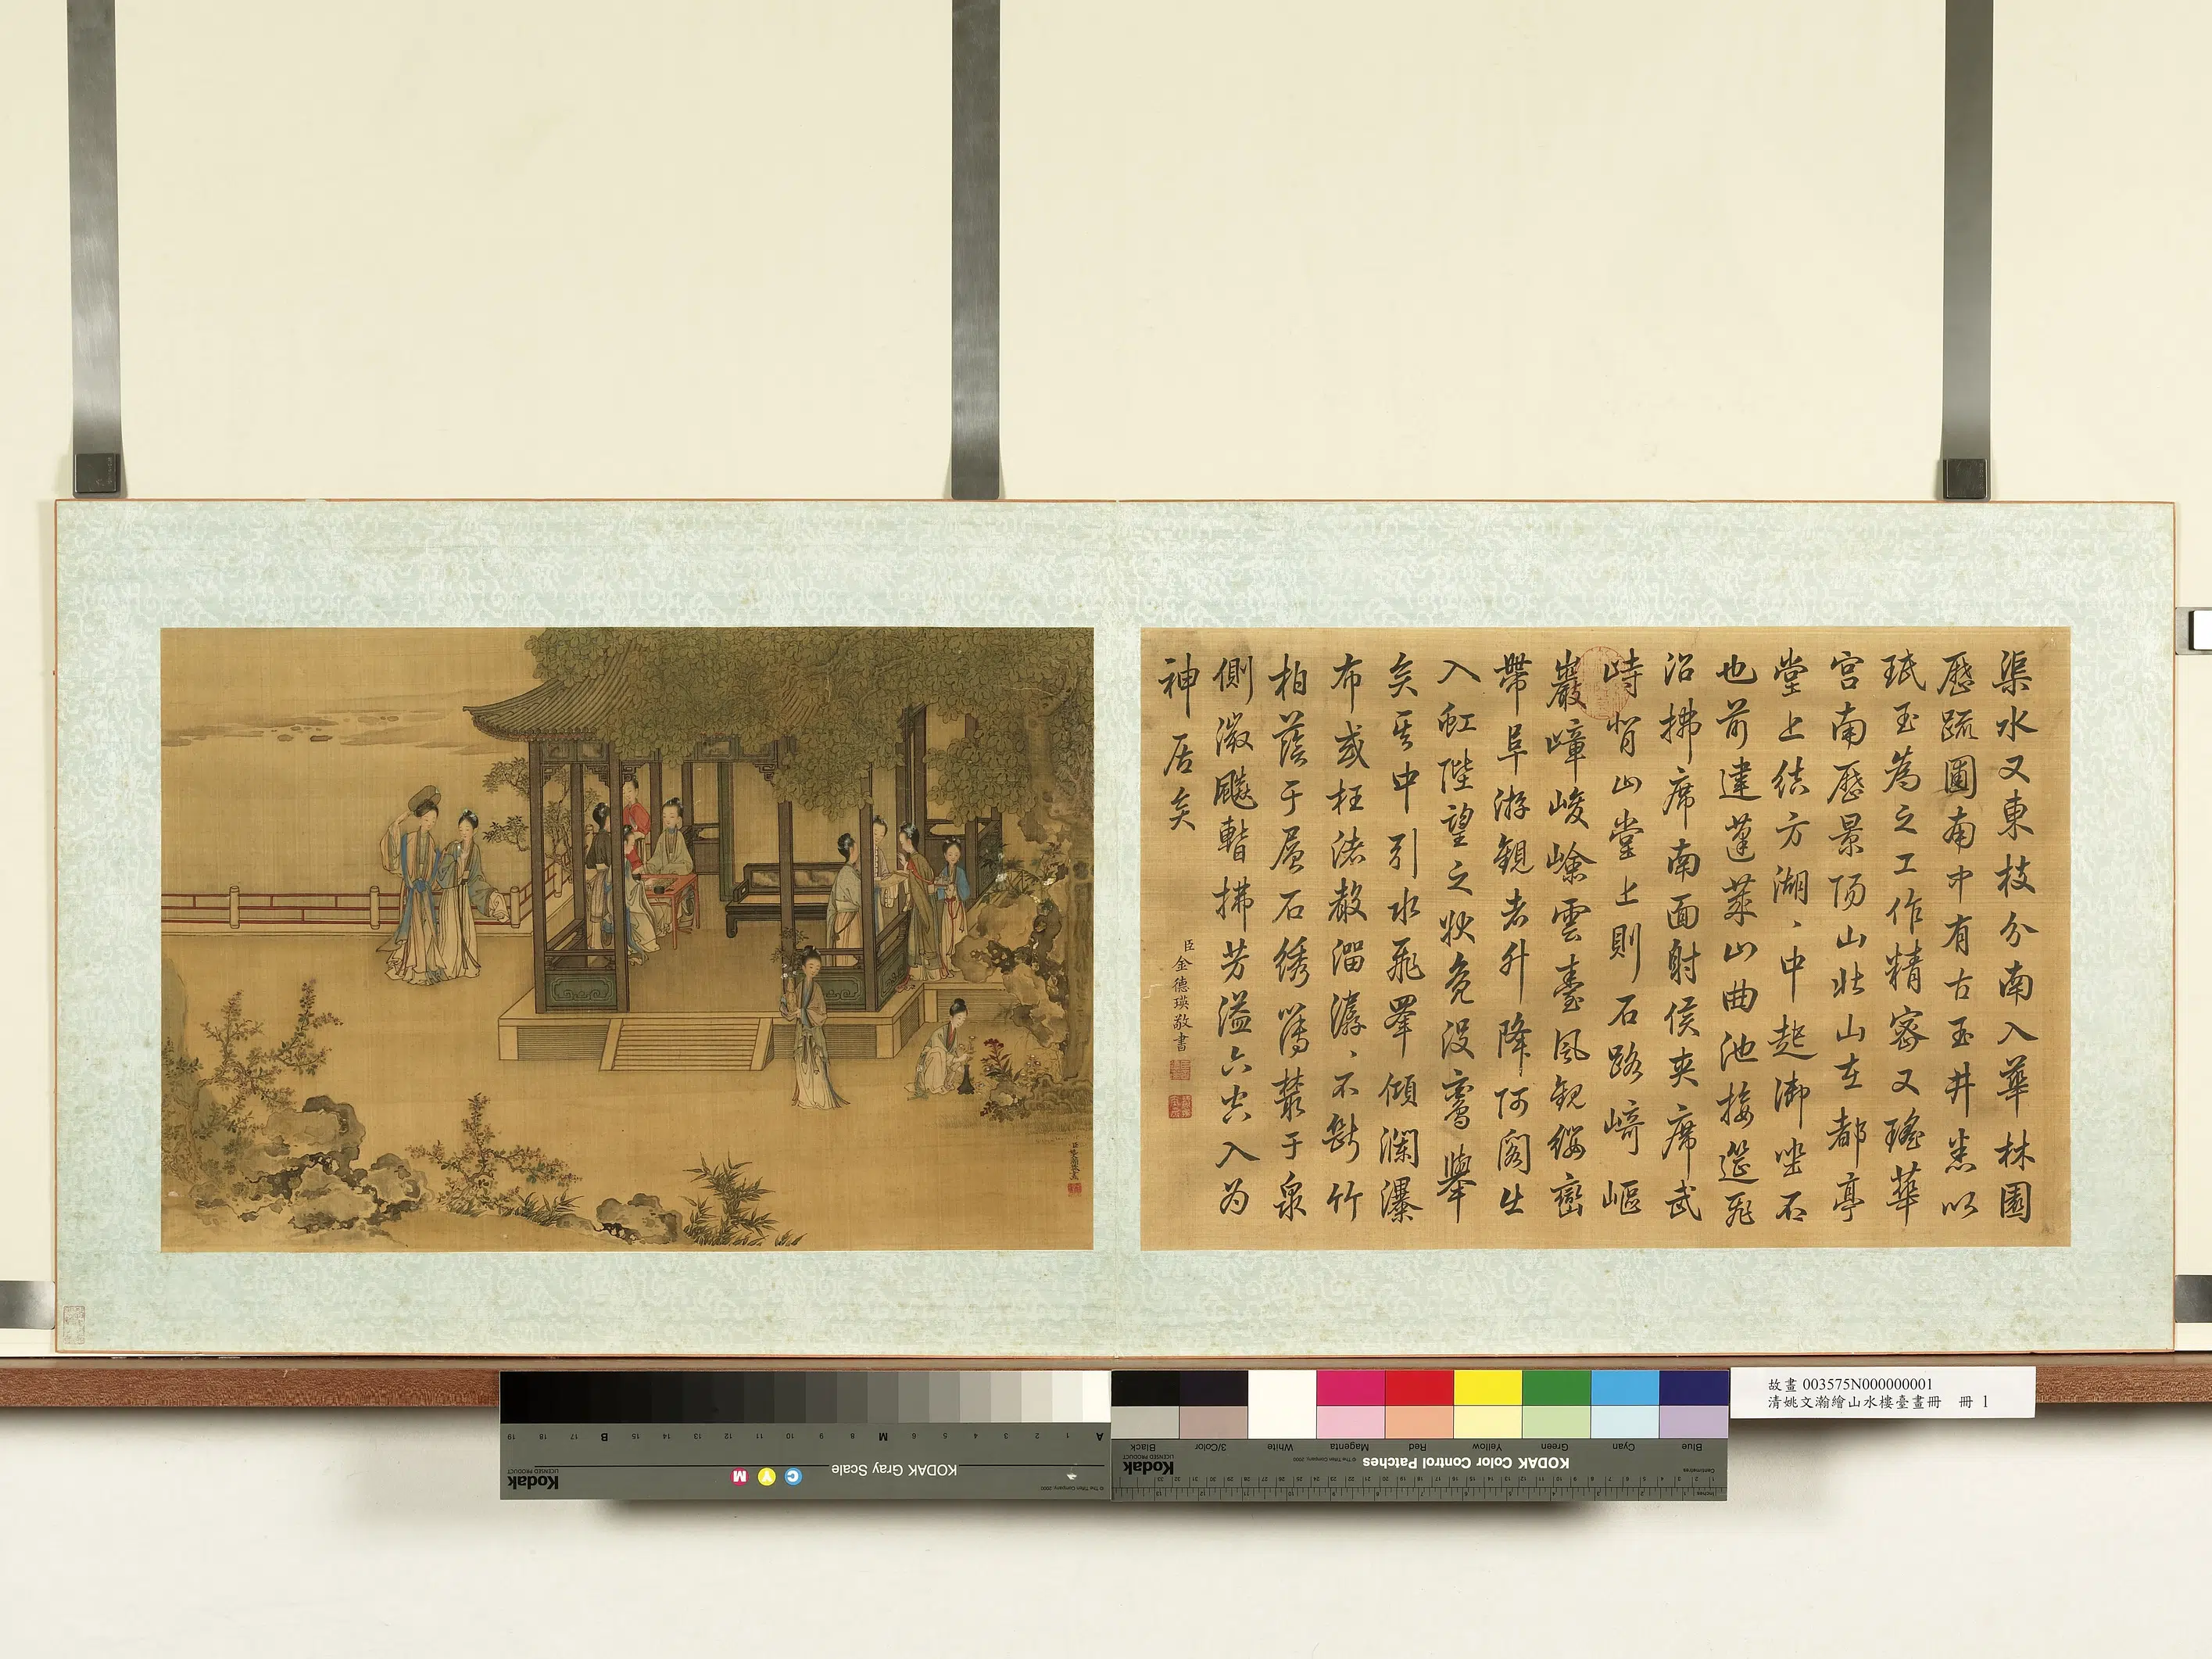 渠水又東枝分南入華林園
歷疏圃南中有古玉井悉以
珉玉為之工作精密又瑤華
宮南歷景陽山北山在都亭
堂上結方湖、中起御坐石
也前建蓬萊山曲池接筵飛
沼拂席南面射侯夾席武
峙背山堂上則石路崎嶇
巖嶂峻嶮雲臺風觀纓巒
帶阜游觀者升降阿閣出
入虹陛望之狀鳧沒鸞舉
矣其中引水飛睪傾瀾瀑
布或枉渚聲溜潺、不斷竹
柏蔭于層石綉薄叢于泉
側微飈暫拂芳溢六空入为
神居矣
臣金德瑛敬書
故畫 003575N000000001
清姚文瀚繪山水樓臺畫冊 冊 1
KODAK Gray Scale
Kodak
LICENSED PRODUCT
C Y M
© The Tiffen Company, 2000
A 1 2 3 4 5 6 M 8 9 10 11 12 13 14 15 B 17 18 19
KODAK Color Control Patches
Kodak
LICENSED PRODUCT
© The Tiffen Company, 2000
Blue Cyan Green Yellow Red Magenta White 3/Color Black
Centimetres
Inches